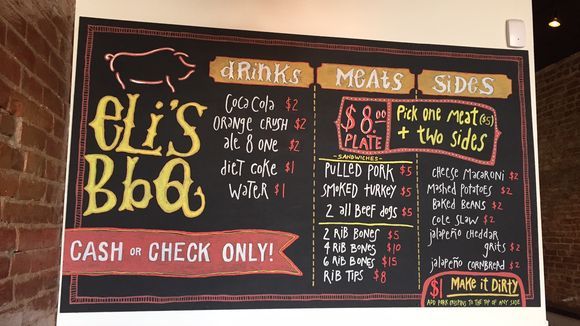 eli's
BbQ
CASH or CHECK ONLY!
dRiNKs
Coca Cola $2
Orange Crush $2
ale 8 one $2
diet Coke $1
Water $1
MeAtS
SideS
$8.00
PLATE
Pick one meat ($5)
+ two sides
-SANDWICHES-
PULLED PORK $5
SMOKED TURKEY $5
2 all Beef dogs $5
2 RiB BONES $5
4 RiB BONES $10
6 RiB BONES $15
RiB TiPS $8
Cheese Macaroni $2
Mashed Potatoes $2
Baked Beans $2
Cole Slaw $2
jalapeño Cheddar
grits $2
jalapeño Cornbread $2
$1 Make it Dirty
ADD PORK
TO THE TOP OF ANY SIDE